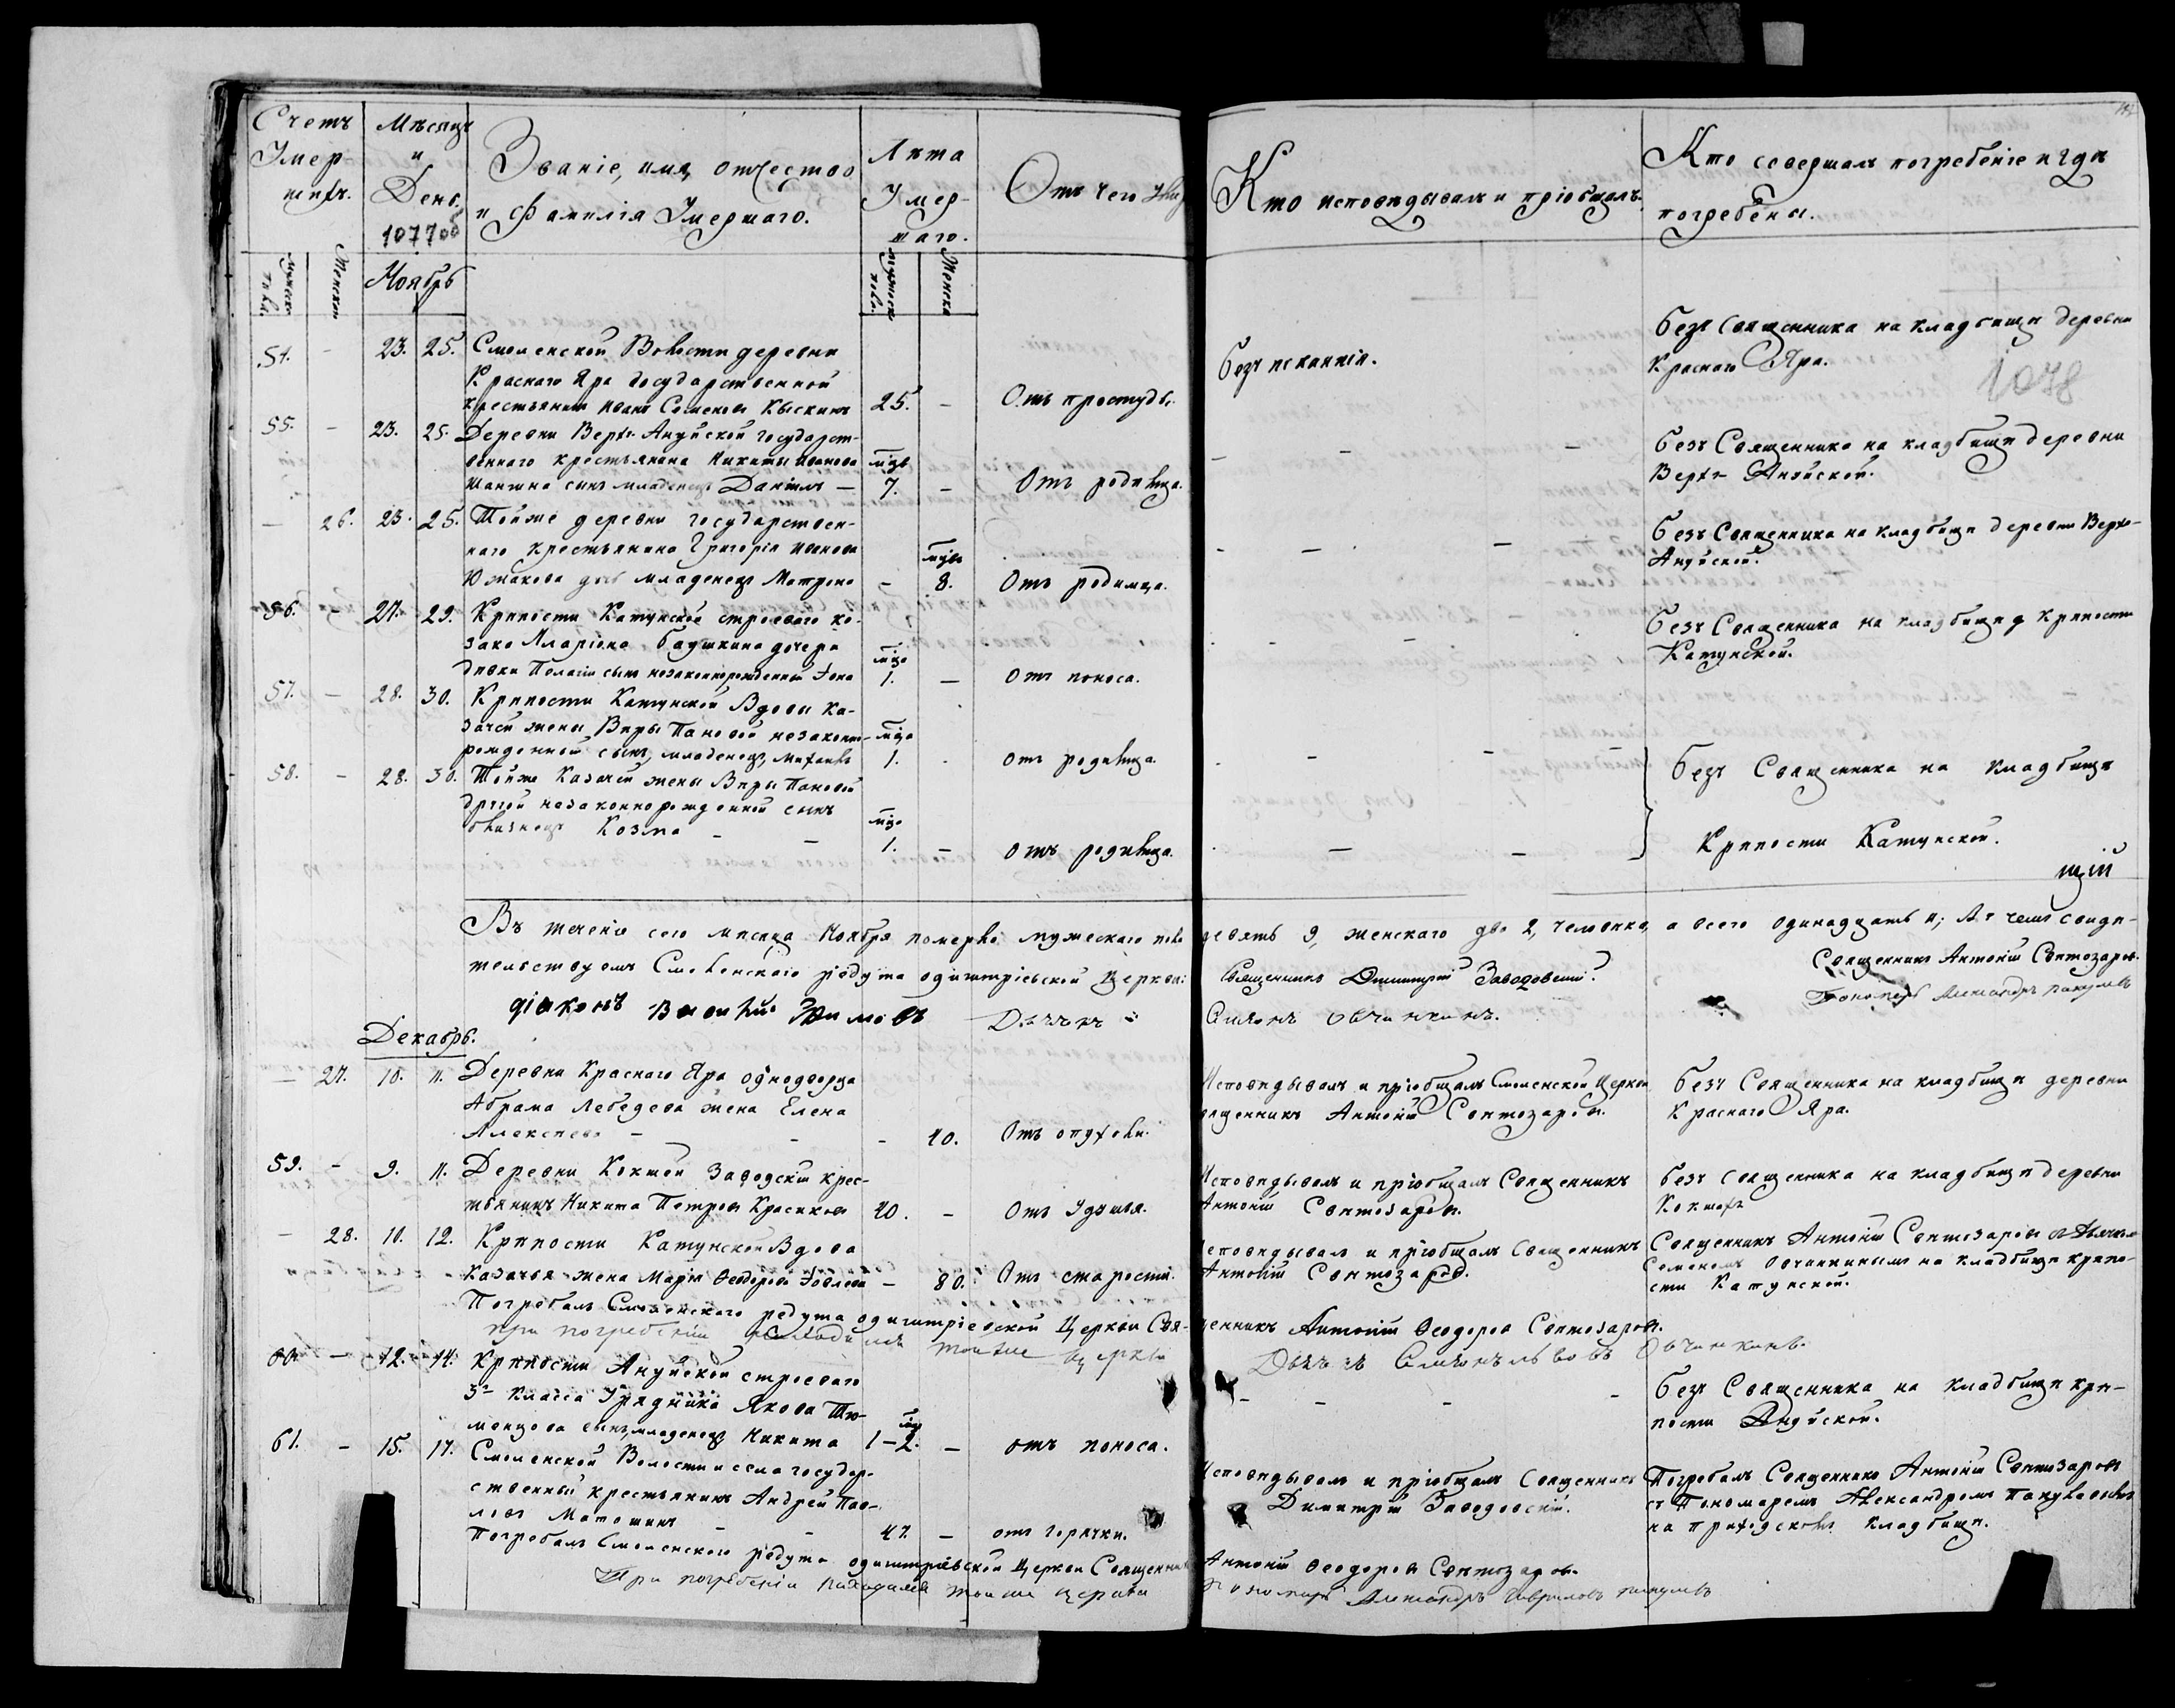 Счетъ
Умер-
шихъ.
Мѣсяцъ
и
День.
107700
Званіе, имя, отчество
и фамилія Умершаго.
Лѣта
Умер-
шаго.
Отъ чего
Кто исповѣдывалъ и пріобщалъ.
Кто совершалъ погребеніе и гдѣ
погребены.
Женска
Ноябрь
54. - 23. 25. Смоленской Волости деревни
Краснаго Яра государственной
крестьянинъ Иванъ Семеновъ 25. - Отъ простуды.
безъ покаянія.
безъ Священника на кладбищѣ деревни
Краснаго Яра.
1078
55. - 23. 25. Деревни Верхъ Ануйской государст-
веннаго крестьянина Никиты Иванова
сынъ младенецъ Даніилъ - мцѣ 7. - Отъ родимца.
- - - безъ Священника на кладбищѣ деревни
Верхъ Ануйской.
- 26. 23. 25. Тойже деревни государствен-
наго крестьянина Григорія Иванова
Южакова дочь младенецъ Матрона - мцѣ 8. Отъ родимца.
- - - безъ Священника на кладбищѣ деревни Верхъ-
Ануйской.
56. - 27. 29. Крѣпости Катунской строеваго ка-
зака Иларіона дочери
дѣвки Пелагіи сынъ незаконнорожденный мцъ 1. - Отъ поноса.
- - - безъ Священника на кладбищѣ Крѣпости
Катунской.
57. - 28. 30. Крѣпости Катунской Вдовы ка-
зачей жены Вѣры Пановой незаконно-
рожденный сынъ, младенецъ, Михаилъ мцъ 1. - отъ родимца.
58. - 28. 30. Тойже Казачей жены Вѣры Пановой
другой незаконнорожденной сынъ
близнецъ Козма - - мцъ 1. - отъ родимца.
безъ Священника на кладбищѣ
Крѣпости Катунской.
Въ теченіе сего мѣсяца Ноября померло мужескаго пола девять 9, женскаго два 2, человѣка, а всего одинадцать 11; въ чемъ свидѣ-
тельствуемъ Смоленскаго редута одигитріевской Церкви: Священникъ Димитрій Заводовскій Священникъ Антоній Свѣтозаровъ.
діаконъ Василій Дьячекъ Симеонъ Овчинкинъ. Пономарь Александръ
Декабрь.
- 27. 10. 11. Деревни Краснаго Яра однодворца
Абрама Лебедева жена Елена
Алексѣева - - - 40. Отъ опухоли.
Исповѣдывалъ и пріобщалъ Смоленской Церкви
священникъ Антоній Свѣтозаровъ.
безъ Священника на кладбищѣ деревни
Краснаго Яра.
59. - 9. 11. Деревни Кокшей Заводскій крес-
тьянинъ Никита Петровъ Красиковъ 40. - Отъ Удушья.
Исповѣдывалъ и пріобщалъ Священникъ
Антоній Свѣтозаровъ.
безъ Священника на кладбищѣ деревни
Кокшахъ
- 28. 10. 12. Крѣпости Катунской Вдова
Казачья жена Марія Ѳеодорова - 80. Отъ старости.
Исповѣдывалъ и пріобщалъ Священникъ
Антоній Свѣтозаровъ.
Священникъ Антоній Свѣтозаровъ съ Дьячкомъ
Семеномъ Овчинкинымъ на кладбищѣ крѣпо-
сти Катунской.
Погребалъ Смоленскаго редута одигитріевской Церкви Священникъ Антоній Ѳеодоровъ Свѣтозаровъ.
при погребеніи находился тойже церкви Дьячекъ Симеонъ Овчинкинъ.
60. - 12. 14. Крѣпости Ануйской строеваго
3го класса Урядника Якова Тю-
менцова сынъ младенецъ Никита 1-2. - отъ поноса.
- - - безъ Священника на кладбищѣ крѣ-
пости Ануйской.
61. - 15. 17. Смоленской Волости и села государ-
ственный крестьянинъ Андрей Пав-
ловъ - - 47. - отъ горячки.
Исповѣдывалъ и пріобщалъ Священникъ
Димитрій Заводовскій.
Погребалъ Священникъ Антоній Свѣтозаровъ
съ Пономаремъ Александромъ
на приходскомъ кладбищѣ.
Погребалъ Смоленскаго редута одигитріевской Церкви Священникъ Антоній Ѳеодоровъ Свѣтозаровъ.
При погребеніи находился тойже церкви пономарь Александръ Гавриловъ